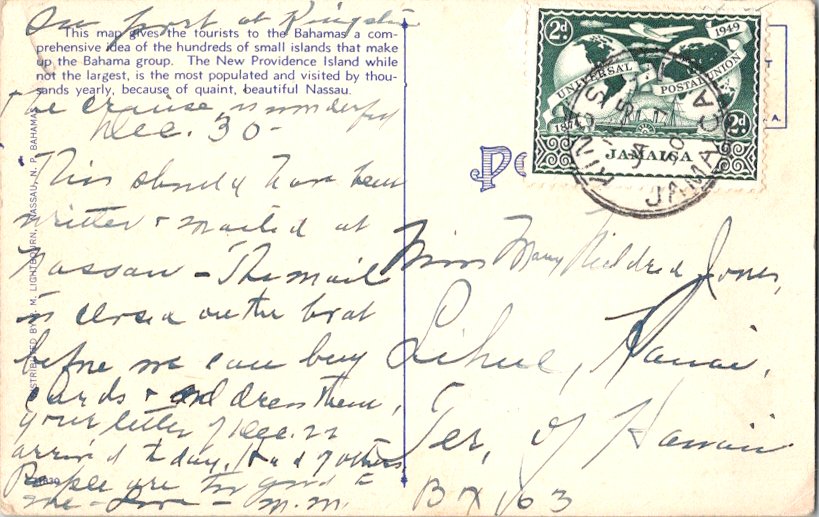 In port at Kingston
This map gives the tourists to the Bahamas a com-
prehensive idea of the hundreds of small islands that make
up the Bahama group. The New Providence Island while
not the largest, is the most populated and visited by thou-
sands yearly, because of quaint, beautiful Nassau.
The cruise is wonderful
Dec. 30 -
This should have been
written & mailed at
Nassau - The mail
is closed on the boat
before we can buy
cards & address them,
your letter of Dec. 22
arrived today,
People are too good to
me - Love - M.M.
DISTRIBUTED BY M. LIGHTBOURN, NASSAU, N. P. BAHAMAS
2d
1949
UNIVERSAL POSTAL UNION
1874
2d
JAMAICA
KINGSTON
JAMAICA
Miss Mary Mildred Jones,
Lihue, Kauai,
Ter. of Hawaii
BX 163